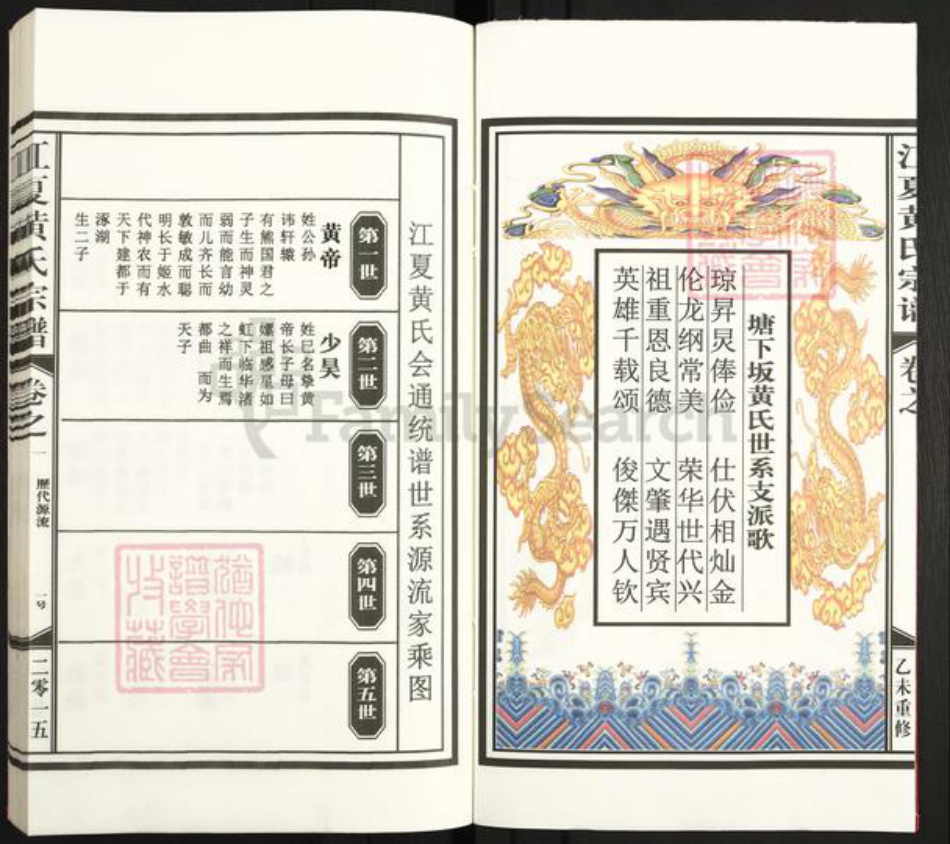 江夏黄氏宗谱
卷之
乙未重修
塘下坂黄氏世系支派歌
琼昇炅俸俭 仕伏相灿金
伦龙纲常美 荣华世代兴
祖重恩良德 文肇遇贤宾
英雄千载颂 俊傑万人钦
江夏黄氏会通统谱世系源流家乘图
第一世
黄帝
姓公孙
讳轩辕
有熊国君之
子生而神灵
弱而能言幼
而儿齐长而
敦敏成而聪
明长于姬水
代神农而有
天下建都于
涿湖
生二子
第二世
少昊
姓巳名挚黄
帝长子母曰
嫘祖感星如
虹下临华渚
之祥而生焉
都曲 而为
天子
第三世
第四世
第五世
江夏黄氏宗谱
卷之一
歷代源流
一号
二零一五
FamilySearch